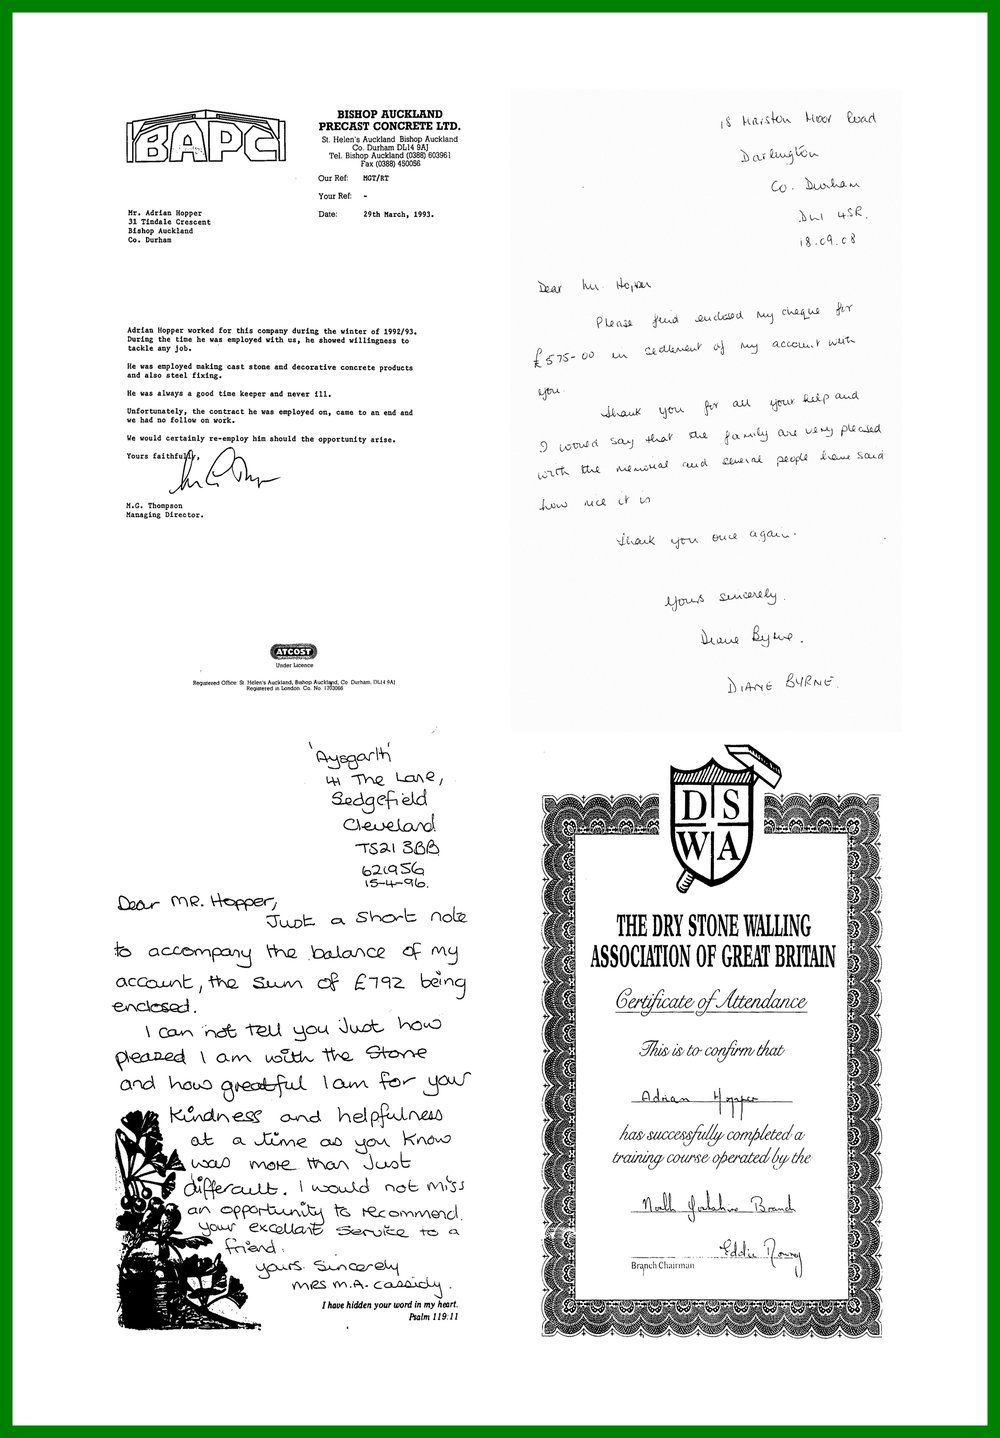 BAPC
BISHOP AUCKLAND
PRECAST CONCRETE LTD.
St. Helen's Auckland Bishop Auckland
Co. Durham DL14 9AJ
Tel. Bishop Auckland (0388) 603961
Fax (0388) 450056
Our Ref: MGT/RT
Your Ref: -
Date: 29th March, 1993.
Mr. Adrian Hopper
31 Tindale Crescent
Bishop Auckland
Co. Durham
Adrian Hopper worked for this company during the winter of 1992/93.
During the time he was employed with us, he showed willingness to
tackle any job.
He was employed making cast stone and decorative concrete products
and also steel fixing.
He was always a good time keeper and never ill.
Unfortunately, the contract he was employed on, came to an end and
we had no follow on work.
We would certainly re-employ him should the opportunity arise.
Yours faithfully,
M.G. Thompson
Managing Director.
ATCOST
Under Licence
Registered Office: St. Helen's Auckland, Bishop Auckland, Co. Durham, DL14 9AJ
Registered in London. Co. No. 1703066
18 Marston Moor Road
Darlington
Co. Durham
DL1 4SR.
18.09.08
Dear Mr. Hopper
Please find enclosed my cheque for
£575-00 in settlement of my account with
you.
Thank you for all your help and
I would say that the family are very pleased
with the memorial and several people have said
how nice it is
Thank you once again.
Yours sincerely.
Diane Byrne.
DIANE BYRNE.
'Aysgarth'
41 The Lane,
Sedgefield
Cleveland
TS21 3BB
621956
15-4-96.
Dear MR. Hopper,
Just a short note
to accompany the balance of my
account, the sum of £792 being
enclosed.
I can not tell you just how
pleased I am with the stone
and how greatful I am for your
kindness and helpfulness
at a time as you know
was more than just
differcult. I would not miss
an opportunity to recommend
your excellant service to a
friend.
yours Sincerely
MRS M.A. Cassidy.
I have hidden your word in my heart.
Psalm 119:11
D S
W A
THE DRY STONE WALLING
ASSOCIATION OF GREAT BRITAIN
Certificate of Attendance
This is to confirm that
Adrian Hopper
has successfully completed a
training course operated by the
North Yorkshire Branch
Eddie
Branch Chairman